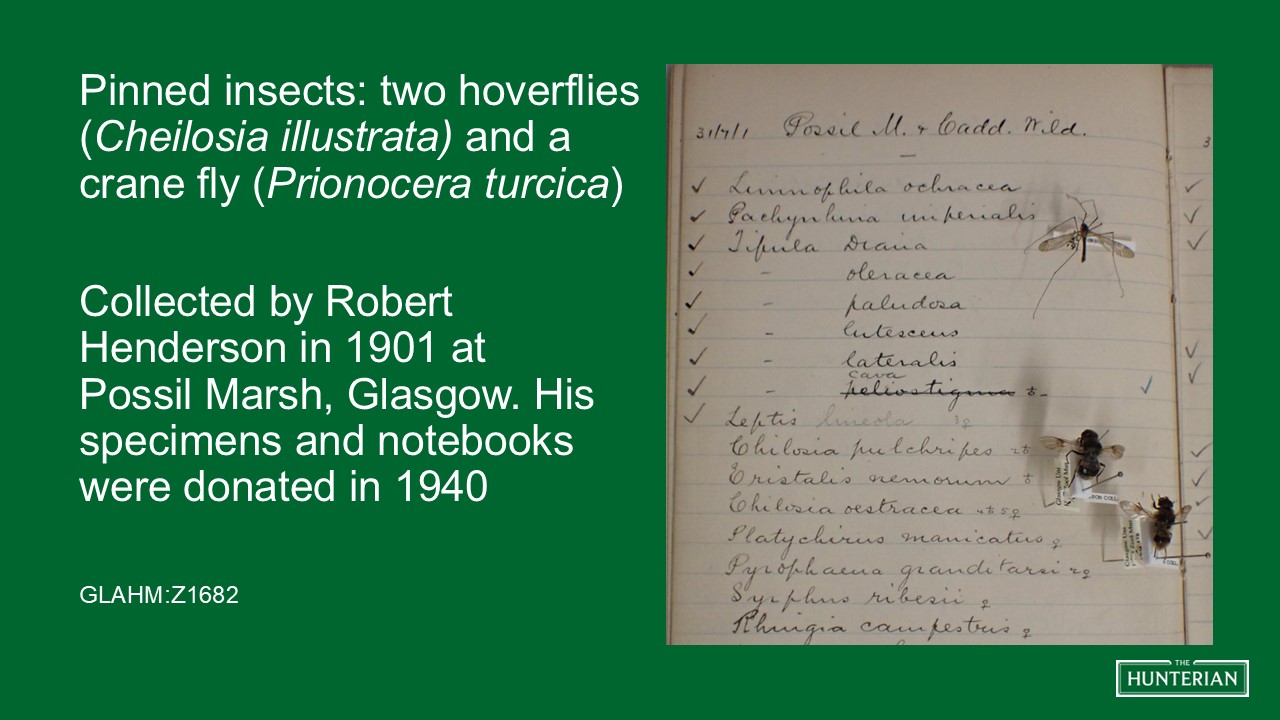 Pinned insects: two hoverflies
(Cheilosia illustrata) and a
crane fly (Prionocera turcica)
Collected by Robert
Henderson in 1901 at
Possil Marsh, Glasgow. His
specimens and notebooks
were donated in 1940
GLAHM:Z1682
31/7/1 Possil M. & Cadd. Wild.
✓ Limnophila ochracea
✓ Pachyrhina imperialis
✓ Tipula Diana
✓ - oleracea
✓ - paludosa
✓ - lutescens
✓ - lateralis
cava
✓ - peliostigma
✓ Leptis lineola
Chilosia pulchripes
Eristalis nemorum
Chilosia oestracea
Platychirus manicatus ♀
Pyrophaena granditarsi 2♀
Syrphus ribesii ♀
Rhingia campestris ♀
THE
HUNTERIAN